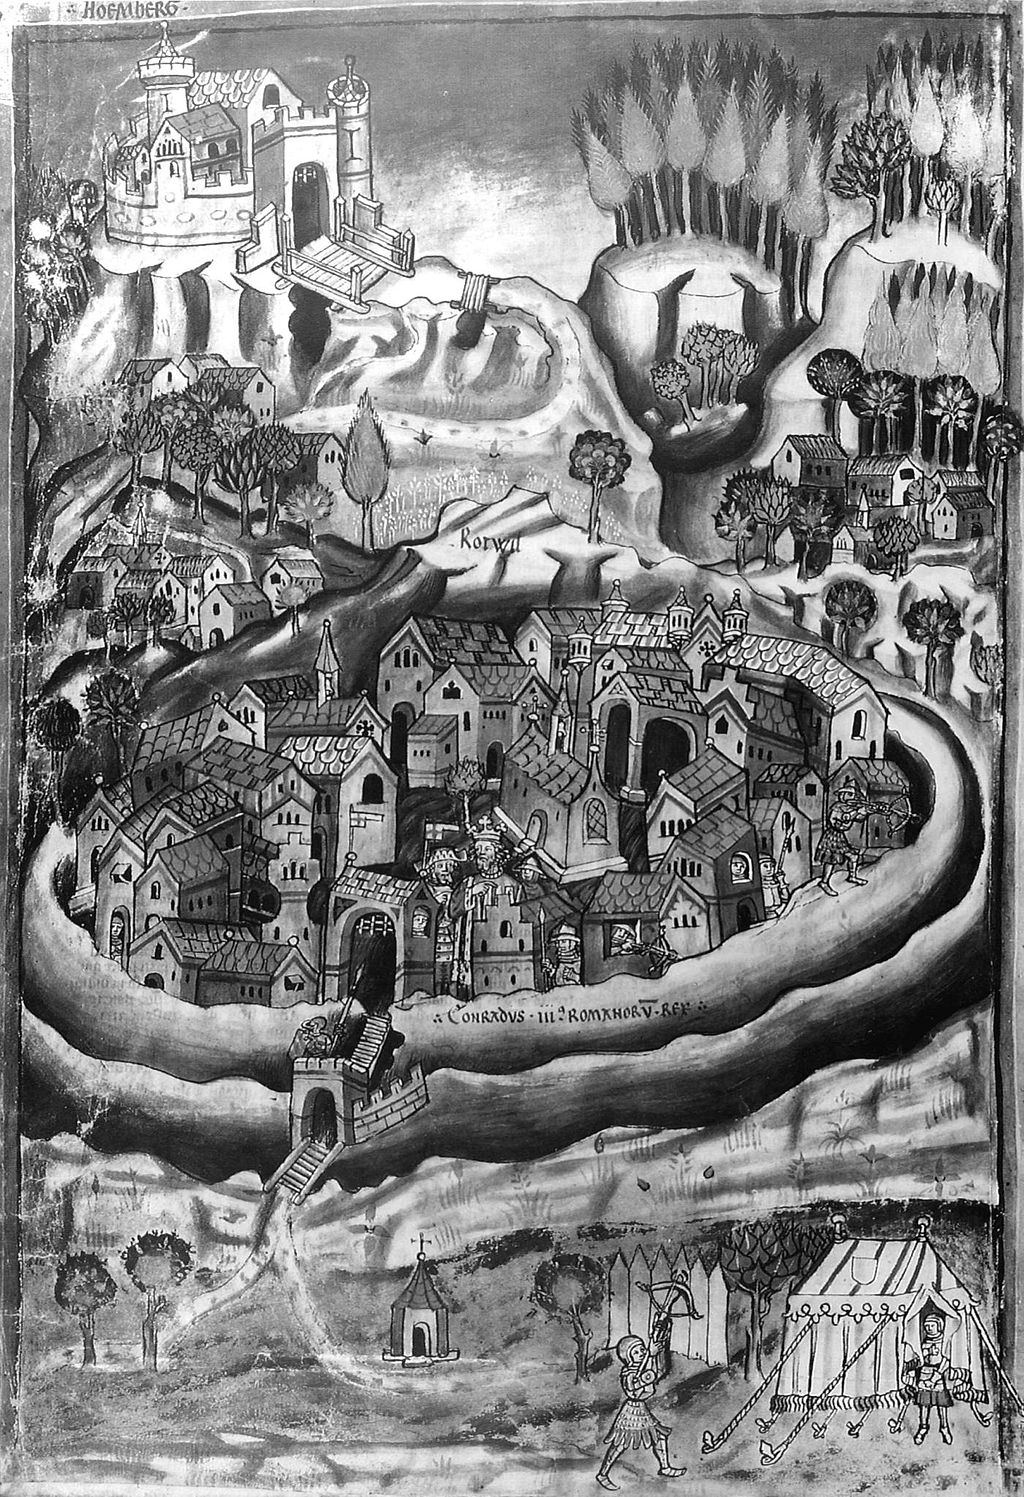 ∴ HOEMBERG ·
Rotwil
∴ CONRADVS · iii⁹ ROMANORV̄ · REX ∴